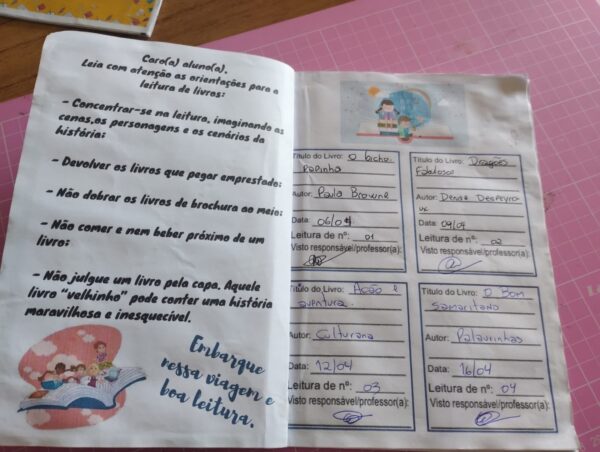 Caro(a) aluno(a),
Leia com atenção as orientações para a
leitura de livros:
- Concentrar-se na leitura, imaginando as
cenas,os personagens e os cenários da
história;
- Devolver os livros que pegar emprestado;
- Não dobrar os livros de brochura ao meio;
- Não comer e nem beber próximo de um
livro;
- Não julgue um livro pela capa. Aquele
livro "velhinho" pode conter uma história
maravilhosa e inesquecível.
Embarque
nessa viagem e
boa leitura.
Título do Livro: O bicho
Papinha
Autor: Paula Browne
Data: 06/04
Leitura de nº: 01
Visto responsável/professor(a):
Título do Livro: Dragões
Autor: Denise
Data: 09/04
Leitura de nº: 02
Visto responsável/professor(a):
Título do Livro: Ação e
aventura.
Autor: Culturama
Data: 12/04
Leitura de nº: 03
Visto responsável/professor(a):
Título do Livro: O Bom
samaritano
Autor: Palavrinhas
Data: 16/04
Leitura de nº: 04
Visto responsável/professor(a):